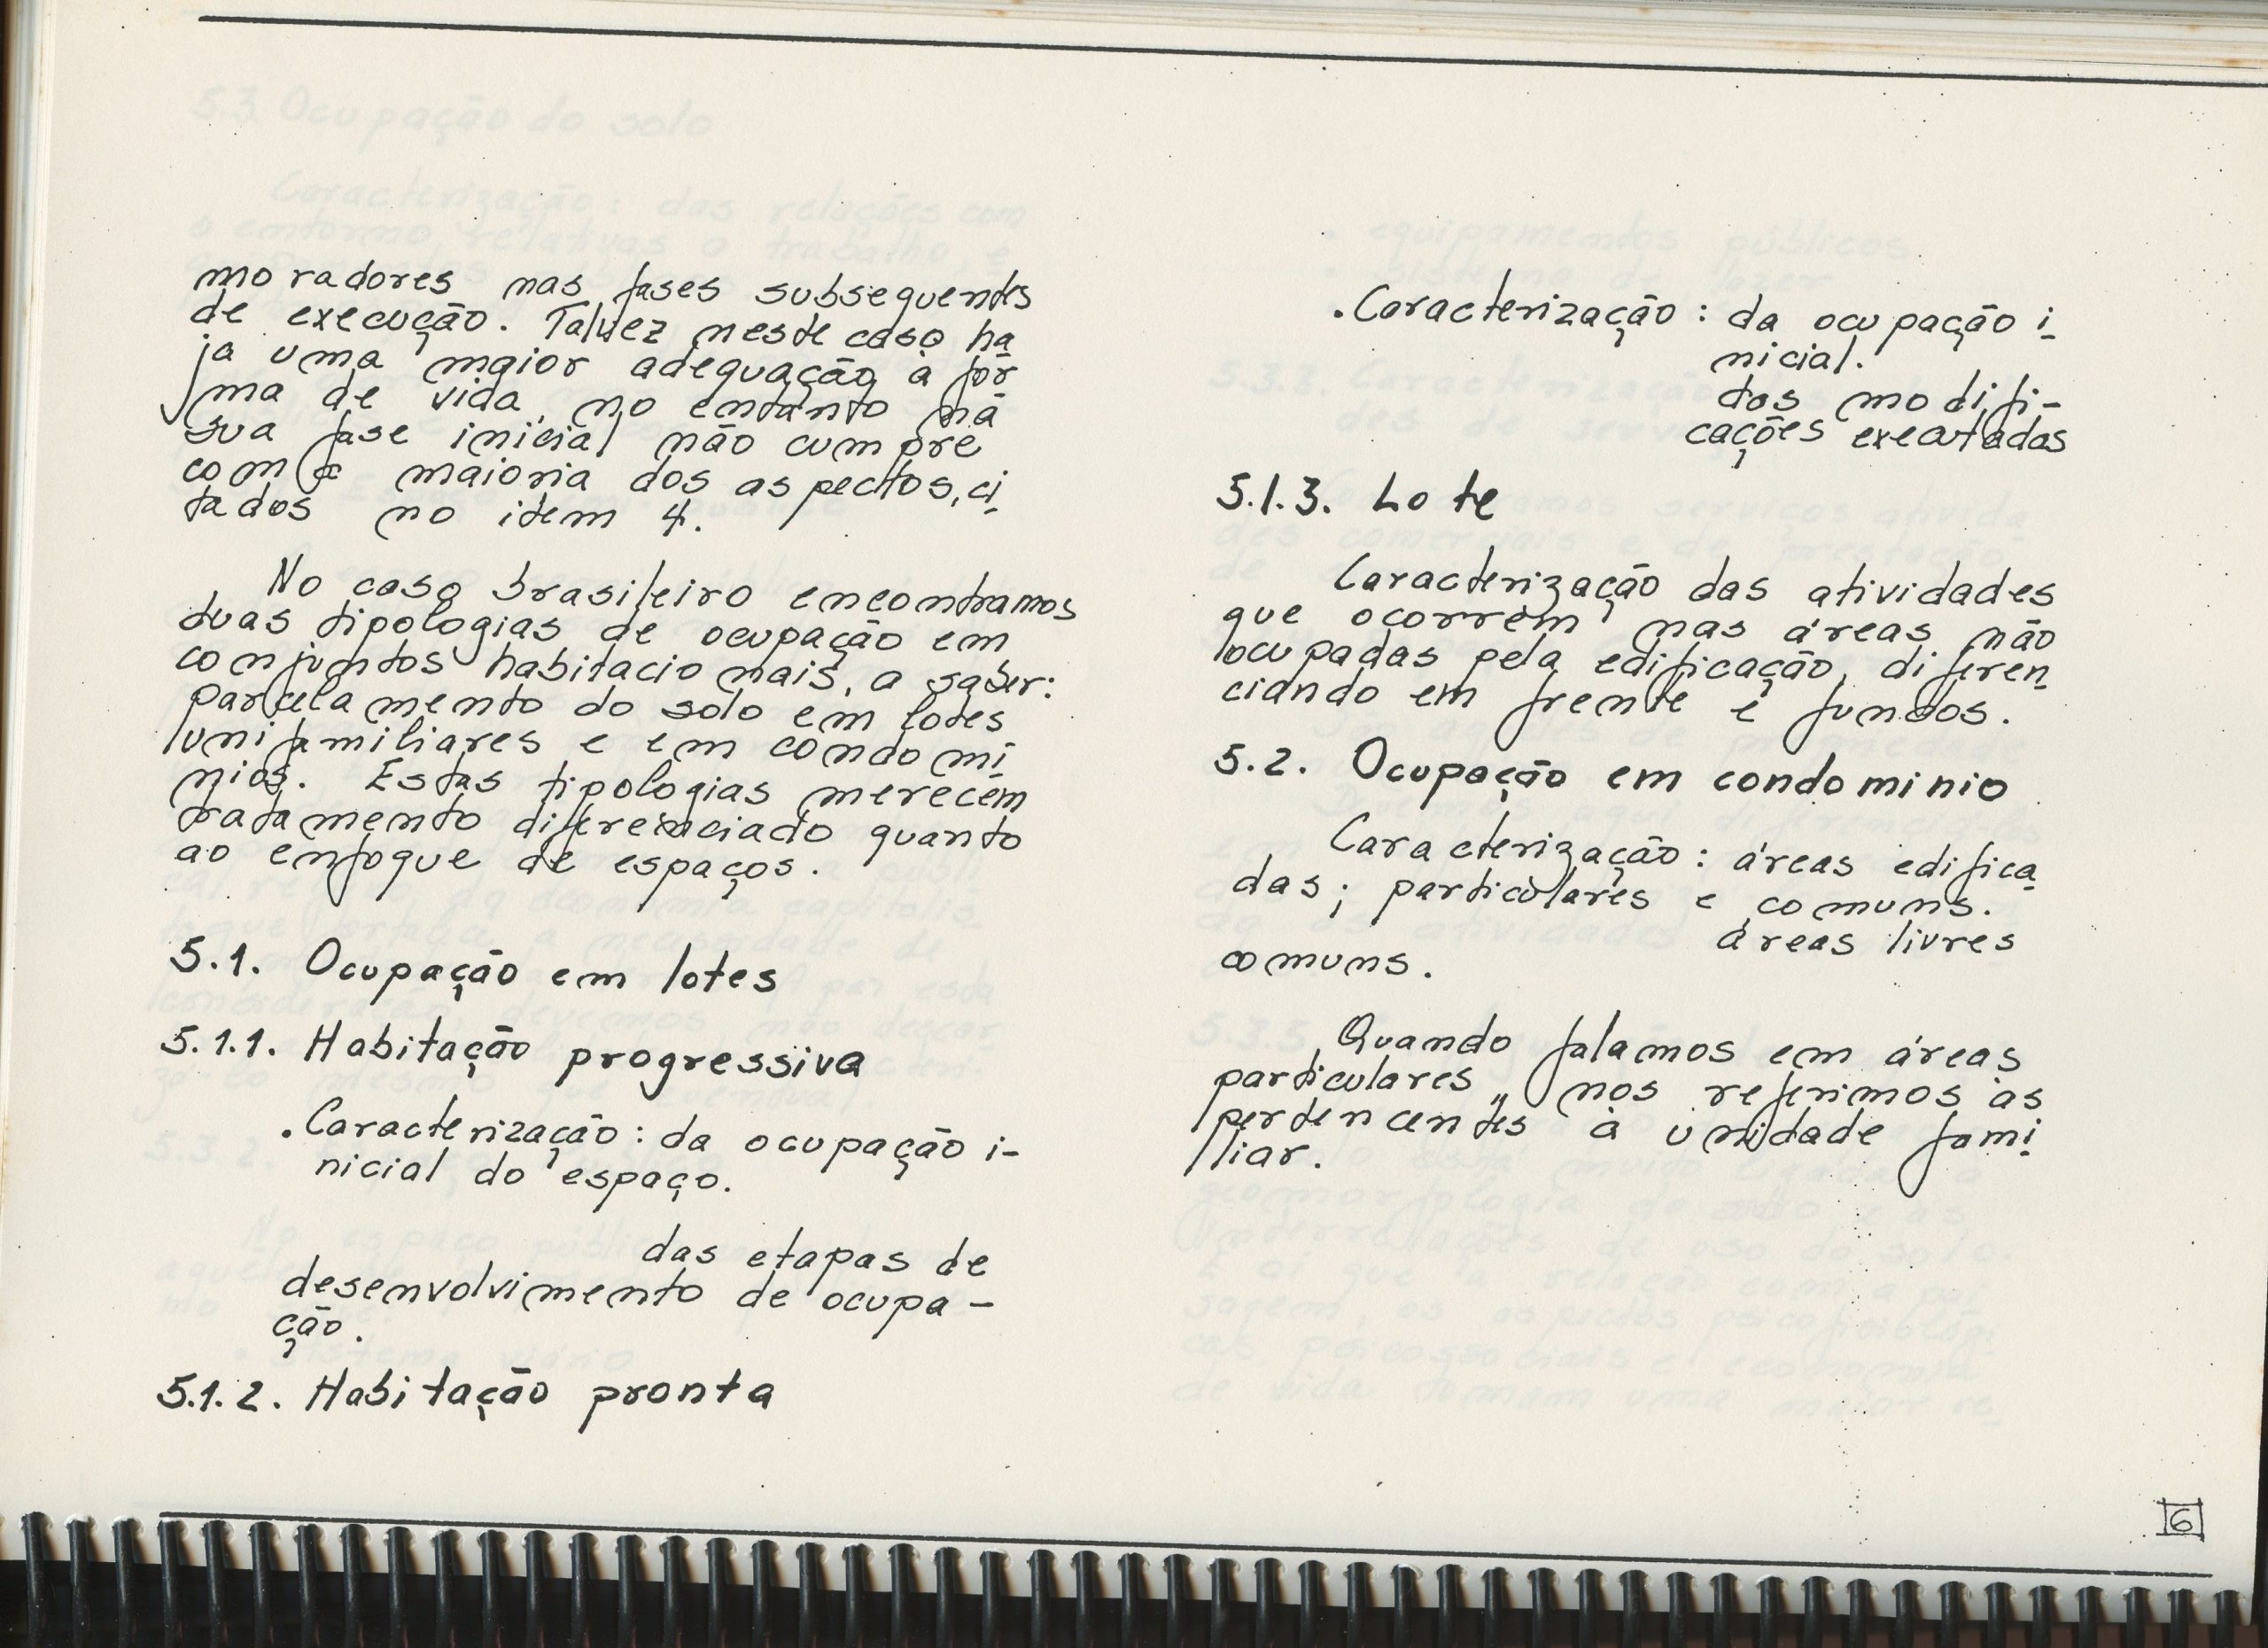 moradores nas fases subsequentes
de execução. Talvez neste caso ha
ja uma maior adequação à for
ma de vida, no entanto na
sua fase inicial não cumpre
com a maioria dos aspectos, ci
tados no item 4.
No caso brasileiro encontramos
duas tipologias de ocupação em
conjuntos habitacionais, a saber:
parcelamento do solo em lotes
unifamiliares e em condomí
nios. Estas tipologias merecem
tratamento diferenciado quanto
ao enfoque de espaços.
5.1. Ocupação em lotes
5.1.1. Habitação progressiva
.Caracterização: da ocupação i-
nicial do espaço.
das etapas de
desenvolvimento de ocupa-
ção.
5.1.2. Habitação pronta
.Caracterização: da ocupação i
nicial.
das modifi-
cações executadas
5.1.3. Lote
Caracterização das atividades
que ocorrem nas áreas não
ocupadas pela edificação, diferen
ciando em frente e fundos.
5.2. Ocupação em condominio
Caracterização: áreas edifica
das; particulares e comuns.
áreas livres
comuns.
Quando falamos em áreas
particulares, nos referimos às
pertencentes à unidade fami
liar.
6